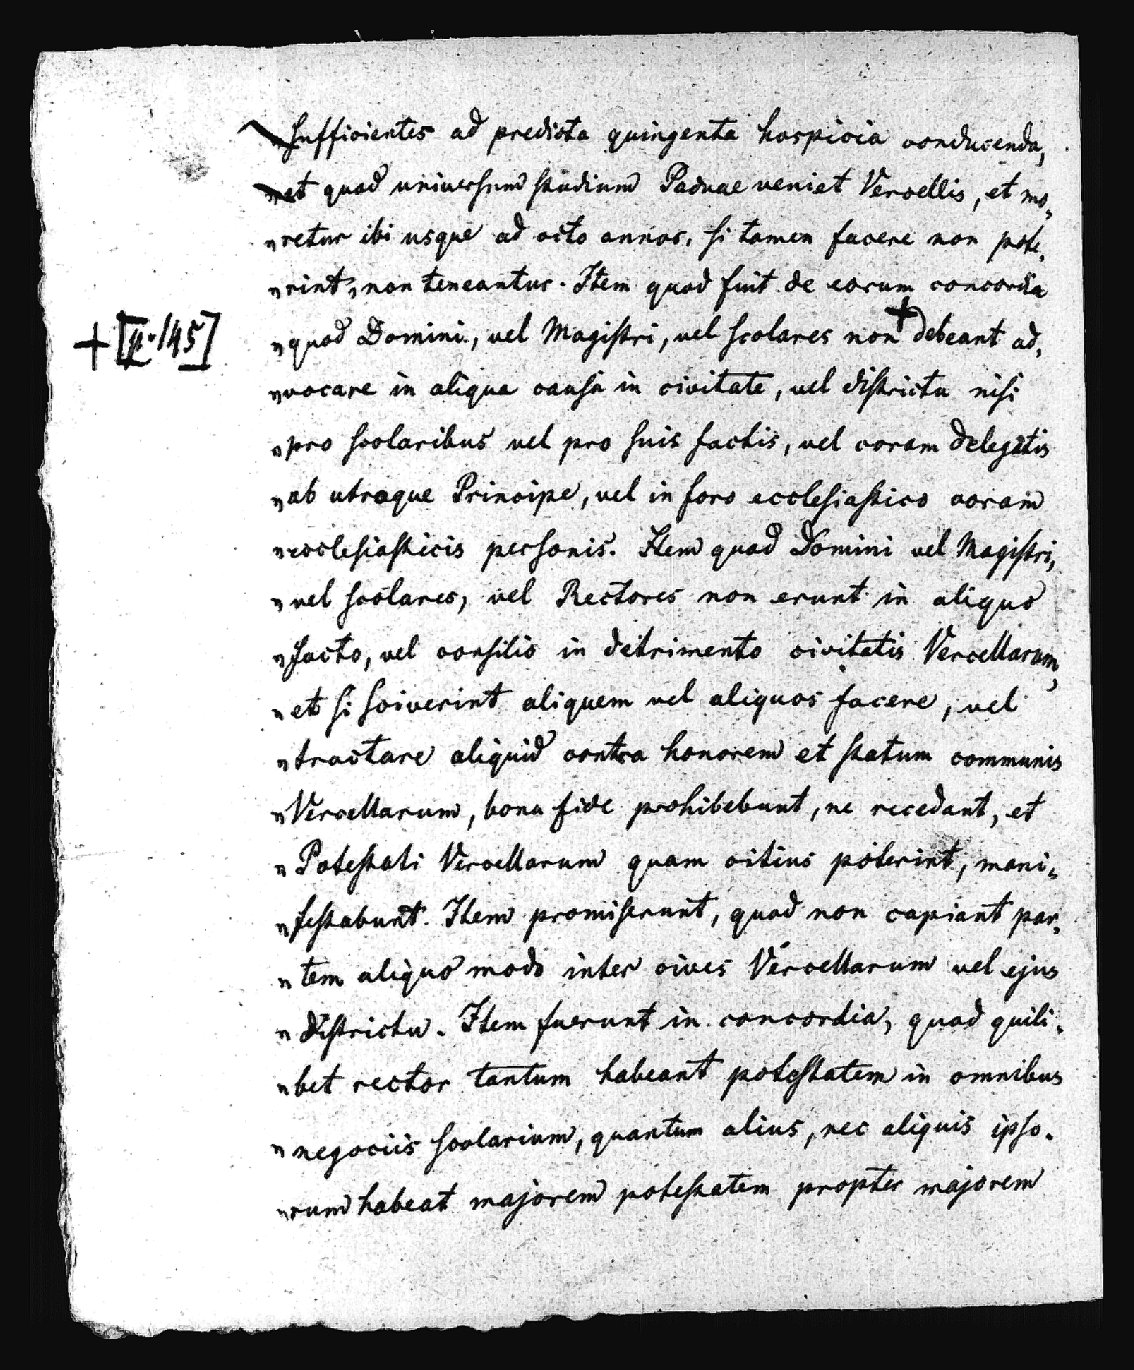 sufficientes ad predicta quingenta hospicia conducenda,
„et quod universum studium Paduae veniat Vercellis, et mo„
„retur ibi usque ad octo annos, si tamen facere non pote„
„rint, non teneantur. Item quod fuit de eorum concordia
„quod Domini, vel Magistri, vel scolares non + debeant ad„
+ [p. 145]
„vocare in aliqua causa in civitate, vel districtu nisi
„pro scolaribus vel pro suis factis, vel coram delegatis
„ab utroque Principe, vel in foro ecclesiastico coram
„ecclesiasticis personis. Item quod Domini vel Magistri,
„vel scolares, vel Rectores non erunt in aliquo
„facto, vel consilio in detrimento civitatis Vercellarum,
„et si sciverint aliquem vel aliquos facere, vel
„tractare aliquid contra honorem et statum communis
„Vercellarum, bona fide prohibebunt, ne recedant, et
„Potestati Vercellarum quam citius poterint, mani„
„festabunt. Item promiserunt, quod non capiant par„
„tem aliquo modo inter cives Vercellarum vel ejus
„districtu. Item fuerunt in concordia, quod quili„
„bet rector tantum habeant potestatem in omnibus
„negociis scolarium, quantum alius, nec aliquis ipso„
„rum habeat majorem potestatem propter majorem